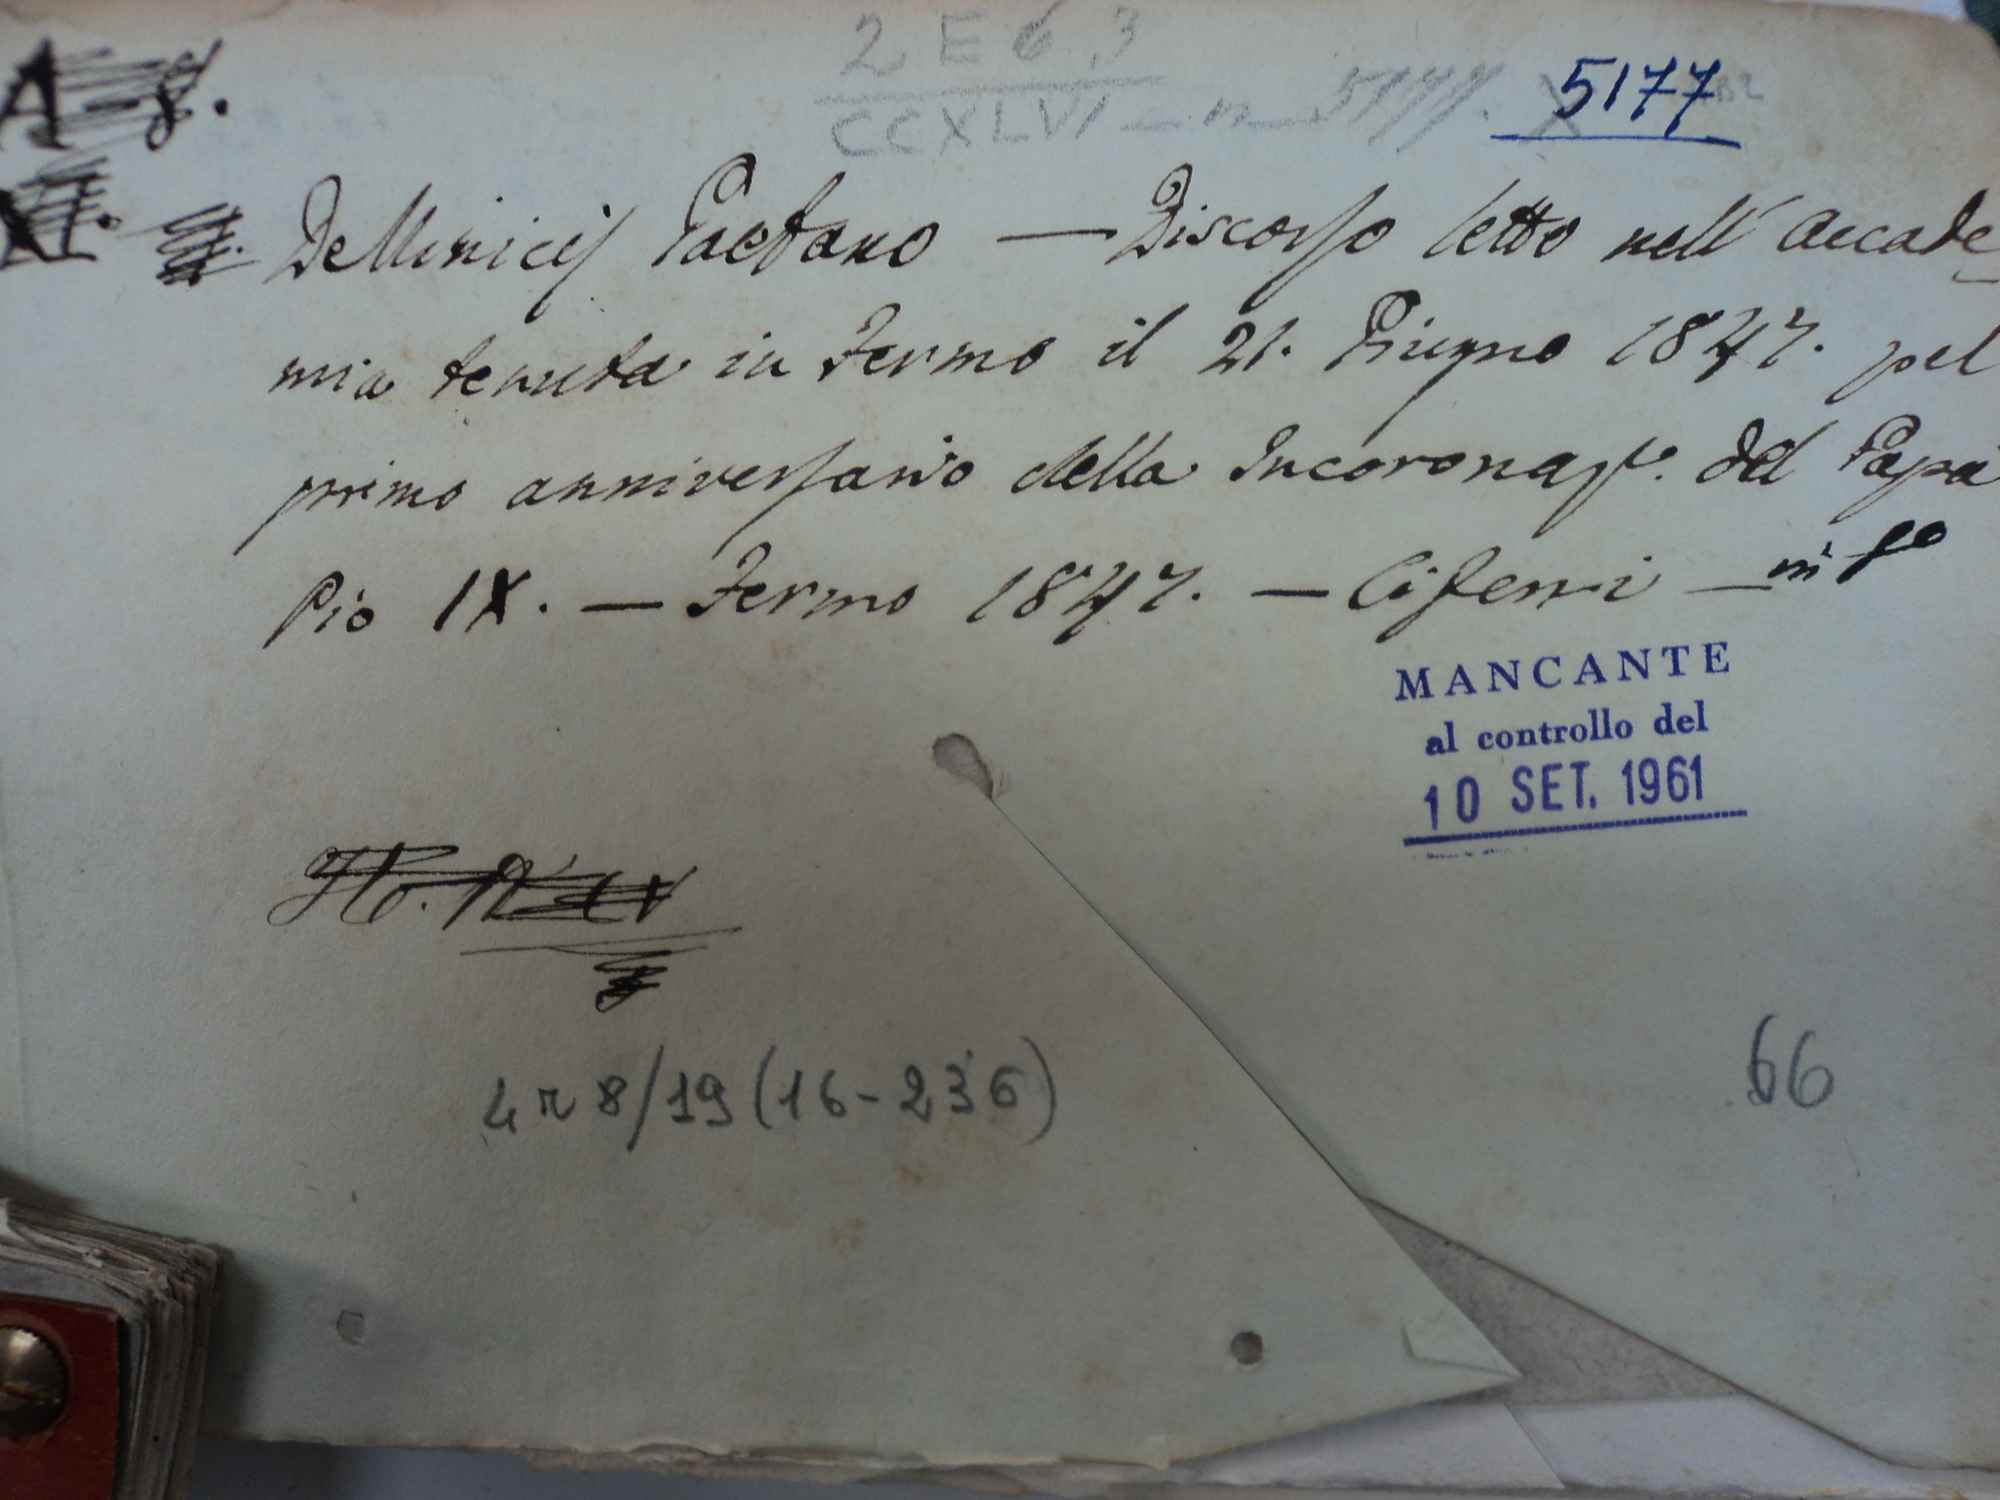 2 E 6 3
CCXLVI - n 5177. 5177
A - 8.
XI.
De Minicis Gaetano — Discorso letto nell' Accade
mia tenuta in Fermo il 21. Giugno 1847. pel
primo anniversario della Incoronaze. del Papa
Pio IX. — Fermo 1847. — Ciferri — in fo
MANCANTE
al controllo del
10 SET. 1961
4 π 8/19 (16-236)
66